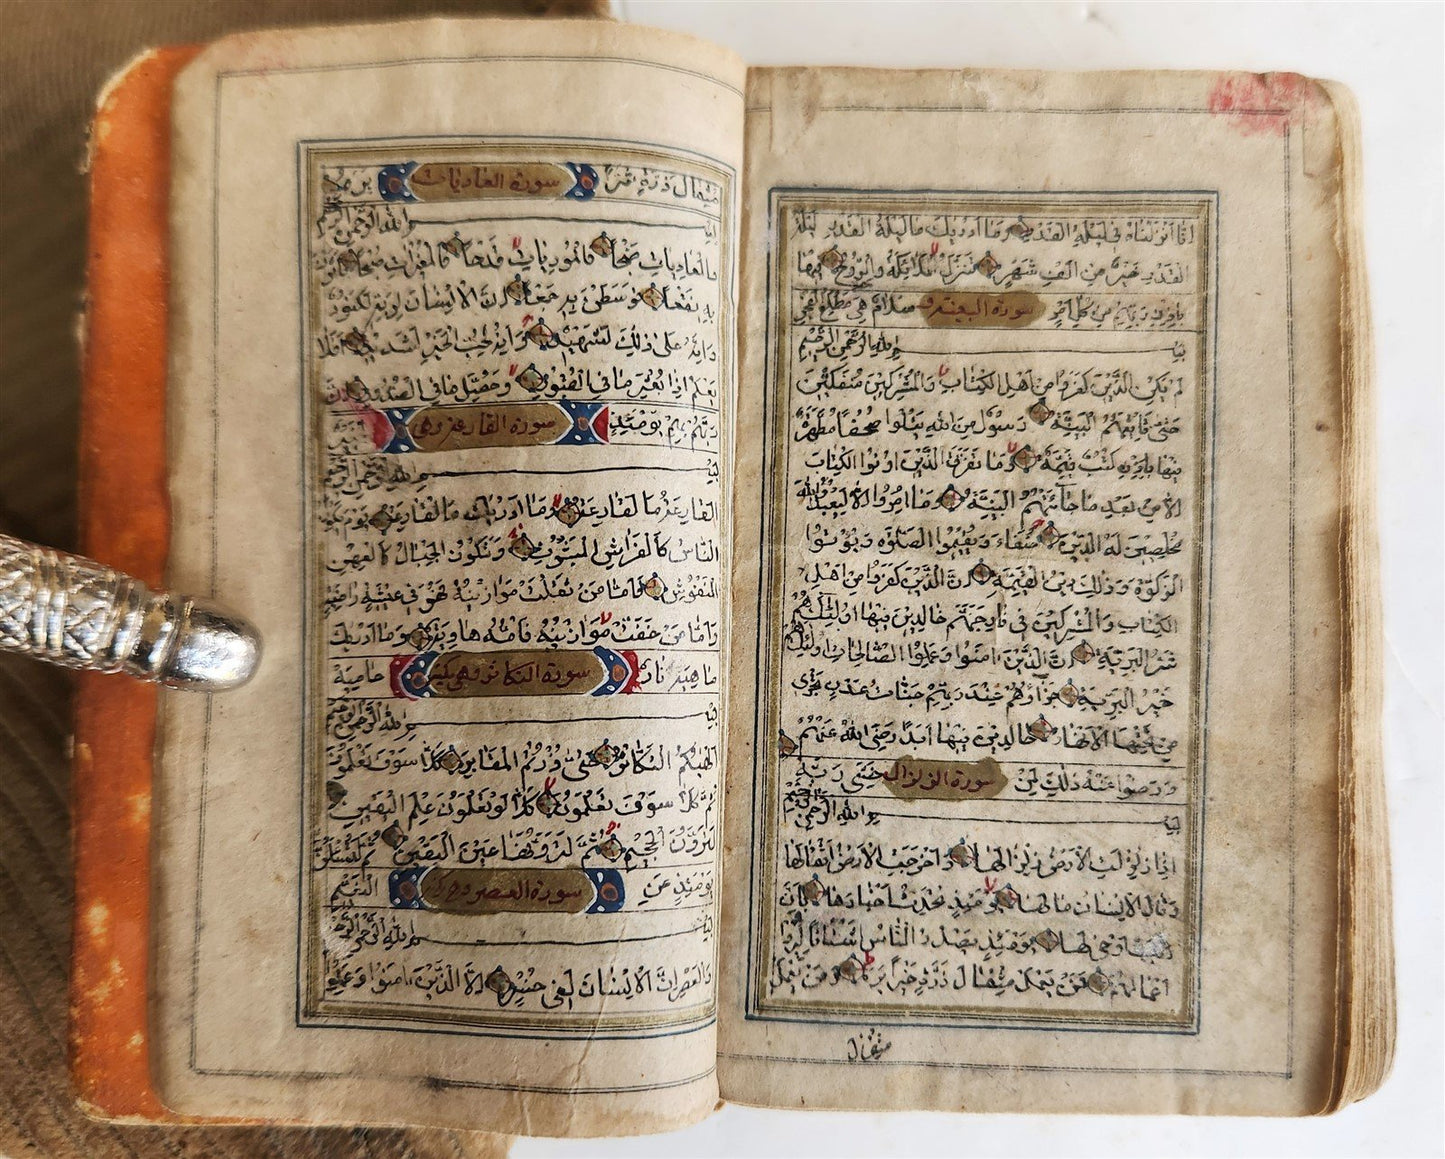 انا انزلناه في ليلة القدر وما ادريك ما ليلة القدر ليلة
القدر خير من الف شهر تنزل الملائكة والروح فيها
باذن ربهم من كل امر سلام هي مطلع الفجر
سورة البينة
بسم الله الرحمن الرحيم
لم يكن الذين كفروا من اهل الكتاب والمشركين منفكين
حتى تاتيهم البينة رسول من الله يتلوا صحفا مطهرة
فيها كتب قيمة وما تفرق الذين اوتوا الكتاب
الا من بعد ما جائتهم البينة وما امروا الا ليعبدوا الله
مخلصين له الدين حنفاء ويقيموا الصلوة ويؤتوا
الزكوة وذلك دين القيمة ان الذين كفروا من اهل
الكتاب والمشركين في نار جهنم خالدين فيها اولئك هم
شر البرية ان الذين امنوا وعملوا الصالحات اولئك هم
خير البرية جزاؤهم عند ربهم جنات عدن تجري
من تحتها الانهار خالدين فيها ابدا رضي الله عنهم
ورضوا عنه ذلك لمن خشي ربه
سورة الزلزال
بسم الله الرحمن الرحيم
اذا زلزلت الارض زلزالها واخرجت الارض اثقالها
وقال الانسان ما لها يومئذ تحدث اخبارها بان
ربك اوحى لها يومئذ يصدر الناس اشتاتا ليروا
اعمالهم فمن يعمل مثقال ذرة خيرا يره ومن يعمل
مثقال
مثقال ذرة شرا يره
سورة العاديات
بسم الله الرحمن الرحيم
والعاديات ضبحا فالموريات قدحا فالمغيرات صبحا فاثرن
به نقعا فوسطن به جمعا ان الانسان لربه لكنود
وانه على ذلك لشهيد وانه لحب الخير لشديد افلا
يعلم اذا بعثر ما في القبور وحصل ما في الصدور ان
ربهم بهم يومئذ لخبير
سورة القارعة وهي
بسم الله الرحمن الرحيم
القارعة ما القارعة وما ادريك ما القارعة يوم يكون
الناس كالفراش المبثوث وتكون الجبال كالعهن
المنفوش فاما من ثقلت موازينه فهو في عيشة راضية
واما من خفت موازينه فامه هاوية وما ادريك
ما هيه نار حامية
سورة التكاثر وهي
بسم الله الرحمن الرحيم
الهيكم التكاثر حتى زرتم المقابر كلا سوف تعلمون
ثم كلا سوف تعلمون كلا لو تعلمون علم اليقين
لترون الجحيم ثم لترونها عين اليقين ثم لتسئلن
يومئذ عن النعيم
سورة العصر وهي
بسم الله الرحمن الرحيم
والعصر ان الانسان لفي خسر الا الذين امنوا وعملوا